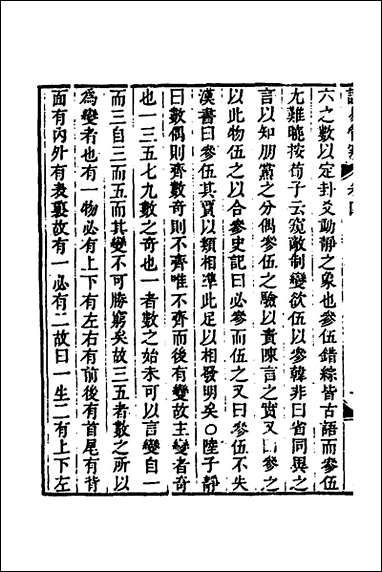 六之數以定卦爻動靜之象也參伍錯綜皆古語而參伍
尤難曉按荀子云窺敵制變欲伍以參韓非曰省同異之
言以知朋黨之分偶參伍之驗以責陳言之實又曰參之
以此物伍之以合參史記曰必參而伍之又曰參伍不失
漢書曰參伍其賈以類相準此足以相發明矣○陸子靜
曰數偶則齊數奇則不齊唯不齊而後有變故主變者奇
也一三五七九數之奇也一者數之始未可以言變自一
而三自三而五而其變不可勝窮矣故三五者數之所以
為變者也有一物必有上下有左右有前後有首尾有背
面有內外有表裏故有一必有二故曰一生二有上下左